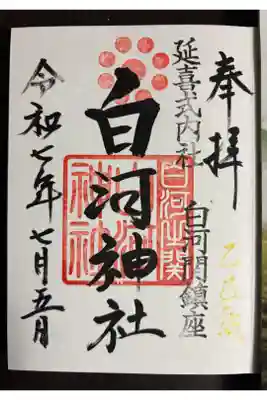 奉拝
乙巳歳
延喜式内社
白河関鎮座
白河神社
令和七年七月五日